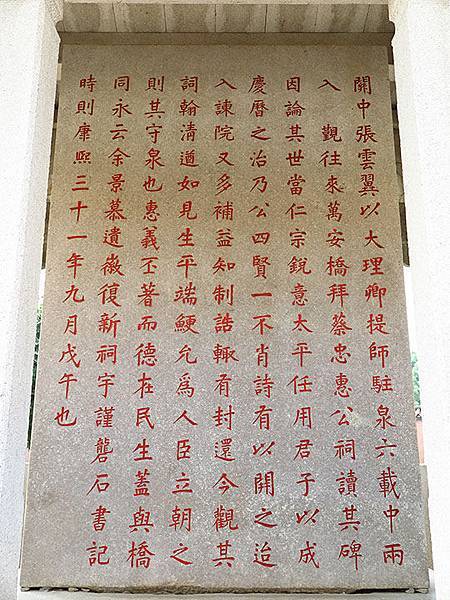 關中張雲翼以大理卿提師駐泉六載中兩
入 覲往來萬安橋拜蔡忠惠公祠讀其碑
因論其世當仁宗銳意太平任用君子以成
慶曆之治乃公四賢一不肖詩有以開之迨
入諫院又多補益知制誥輙有封還今觀其
詞翰清遒如見生平端鯁允為人臣立朝之
則其守泉也惠義丕著而德在民生蓋與橋
同永云余景慕遺徽復新祠宇謹礱石書記
時則康熙三十一年九月戊午也